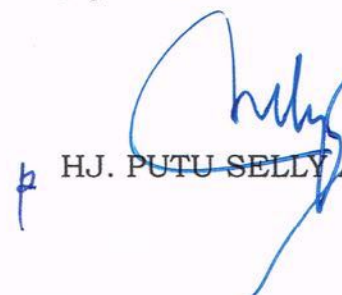 HJ. PUTU SELLY